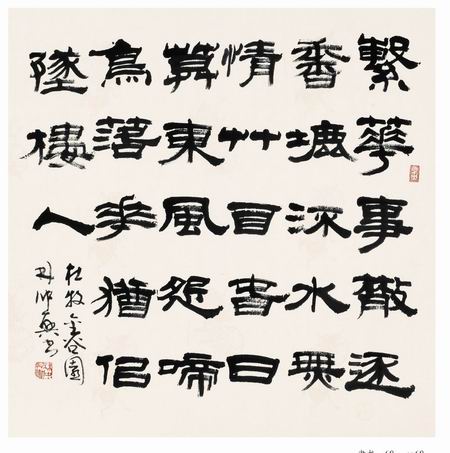 繁華事散逐
香塵流水無
情艸自春日
暮東風怨啼
鳥落花猶佀
墜樓人
杜牧金谷園
書